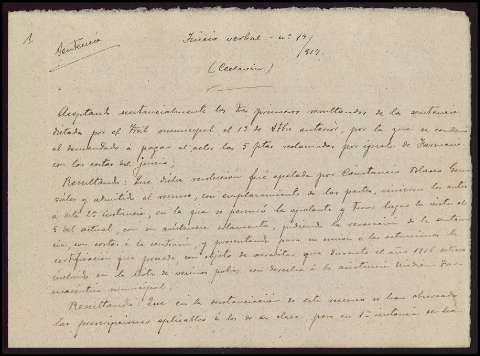 Sentencia
Juicio verbal - nº 19
/917.
Aceptando sustancialmente los dos primeros resultandos de la sentencia
dictada por el municipal el 1º de anterior, por la que se condenó
al demandado a pagar al actor las 5 ptas reclamadas por iguala de
con las costas del juicio;
Resultando: Que dicha resolución fué apelada por Constancio Blanco
y admitido el recurso, con emplazamiento de las partes, los autos
a esta 2ª instancia, en la que se personó la apelante y tuvo lugar la vista el
5 del actual, con su asistencia solamente, pidiendo la revocación de la senten
cia, con costas a la contraria, y presentando para su unión a las actuaciones la
certificación que con objeto de acreditar que durante el año 1916 estuvo
incluido en la lista de vecinos pobres, con derecho a la asistencia
municipal.
Resultando: Que en la sustanciación de este recurso se han observado
las prescripciones aplicables a los de su clase, pero en 1ª instancia se